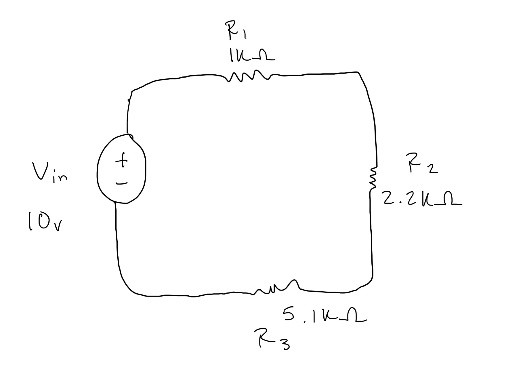 R1
1KΩ
+
−
Vin
10v
R2
2.2KΩ
5.1KΩ
R3